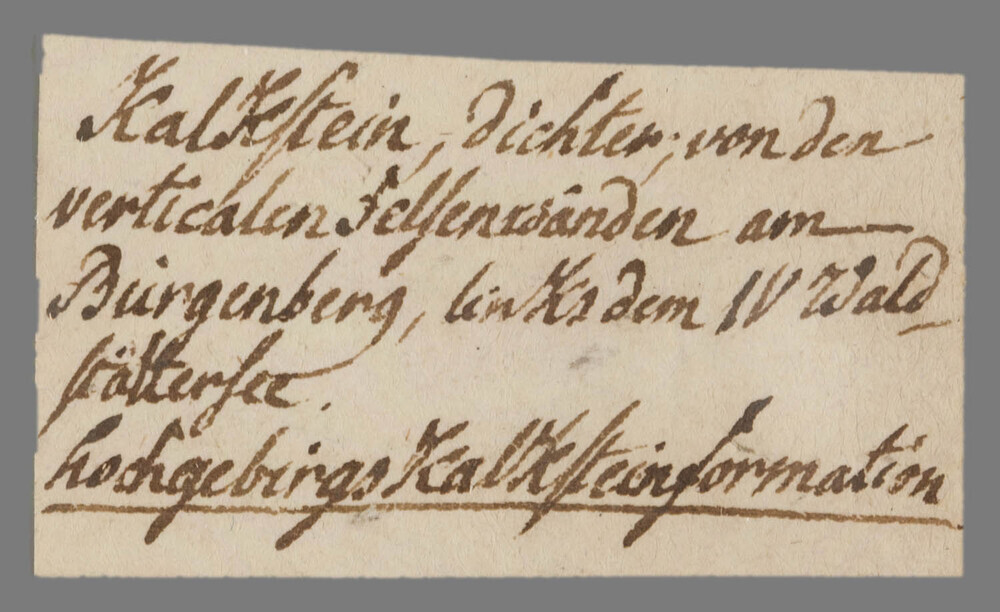 Kalkstein, dichter; von den
verticalen Felsenwänden am
Bürgenberg, links dem IV Wald-
stättersee.
hochgebirgs Kalksteinformation